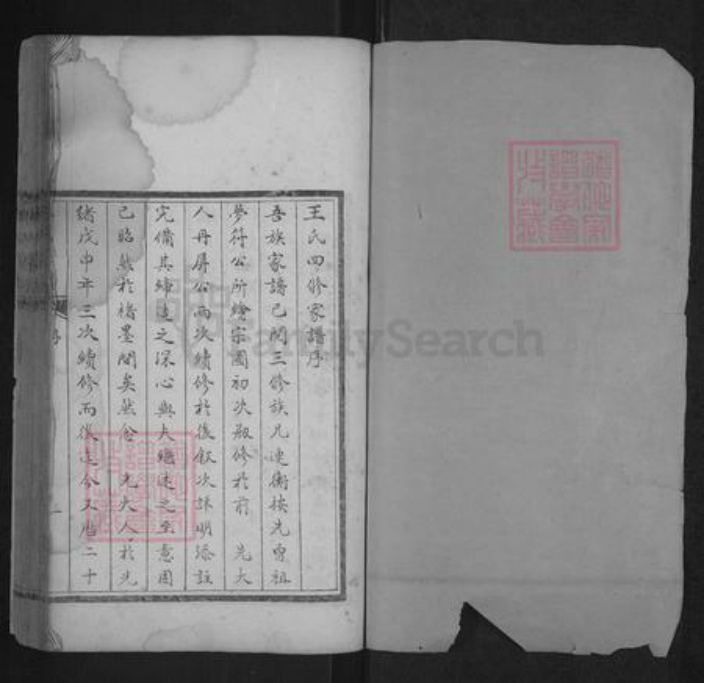 王氏四修家譜序
吾族家譜已閱三修族兄連衡按先曾祖
夢符公所繪宗圖初次敬修於前 先大
人丹屏公兩次續修於後敘次詳明添註
完備其締造之深心與夫繼述之至意固
已昭然於楮墨間矣然自 先大人於光
緒戊申年三次續修而後迄今又曆二十
序
一
FamilySearch